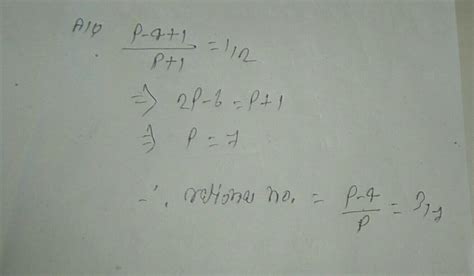 A/Q P-4+1/P+1 = 1/2
=> 2P-6 = P+1
=> P = 7
∴ rational no. = P-4/P = 3/7